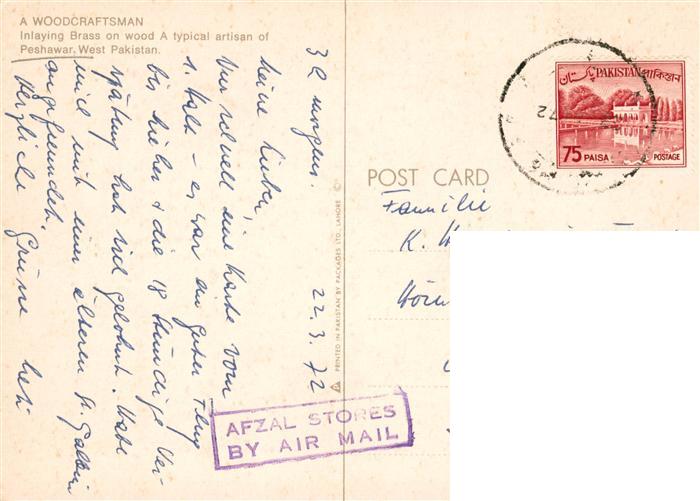 A WOODCRAFTSMAN
Inlaying Brass on wood A typical artisan of
Peshawar, West Pakistan.
22.3.72
meine Lieben,
Nur schnell eine Karte vom
1. Halt – es war ein guter Flug
bis hierher & die 18 stündige Ver-
spätung hat sich gelohnt. Habe
mich mit einer älteren St. Gallerin
angefreundet.
Herzliche Grüsse
PRINTED IN PAKISTAN BY PACKAGES LTD., LAHORE
POST CARD
پاکستان PAKISTAN পাকিস্তান
75 PAISA POSTAGE
72
Familie
K.
AFZAL STORES
BY AIR MAIL